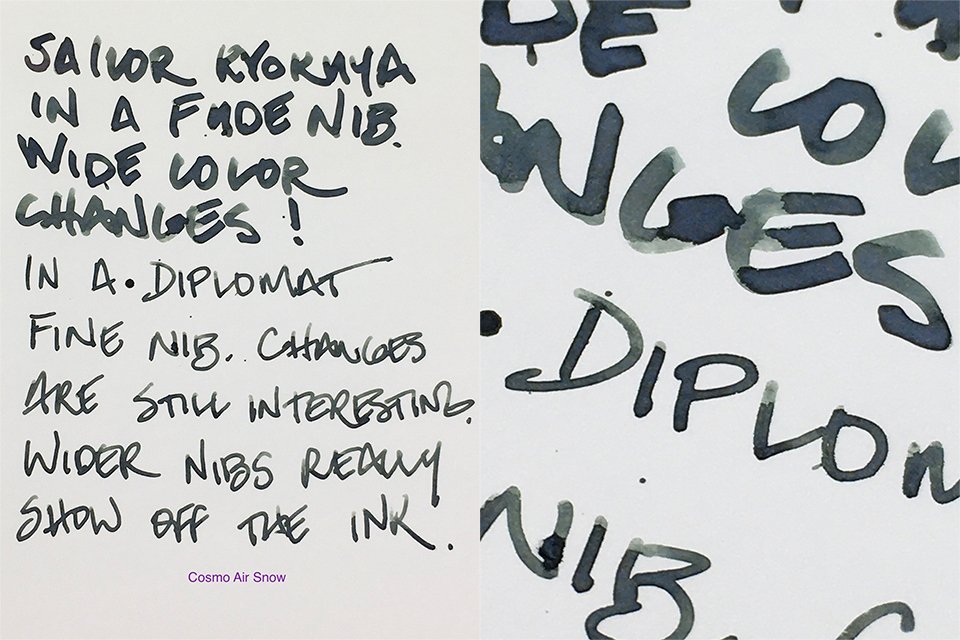 SAILOR KYOKUYA
IN A FUDE NIB.
WIDE COLOR
CHANGES!
IN A • DIPLOMAT
FINE NIB. CHANGES
ARE STILL INTERESTING.
WIDER NIBS REALLY
SHOW OFF THE INK.
Cosmo Air Snow
DE
COL
NGES
• DIPLOM
NIB